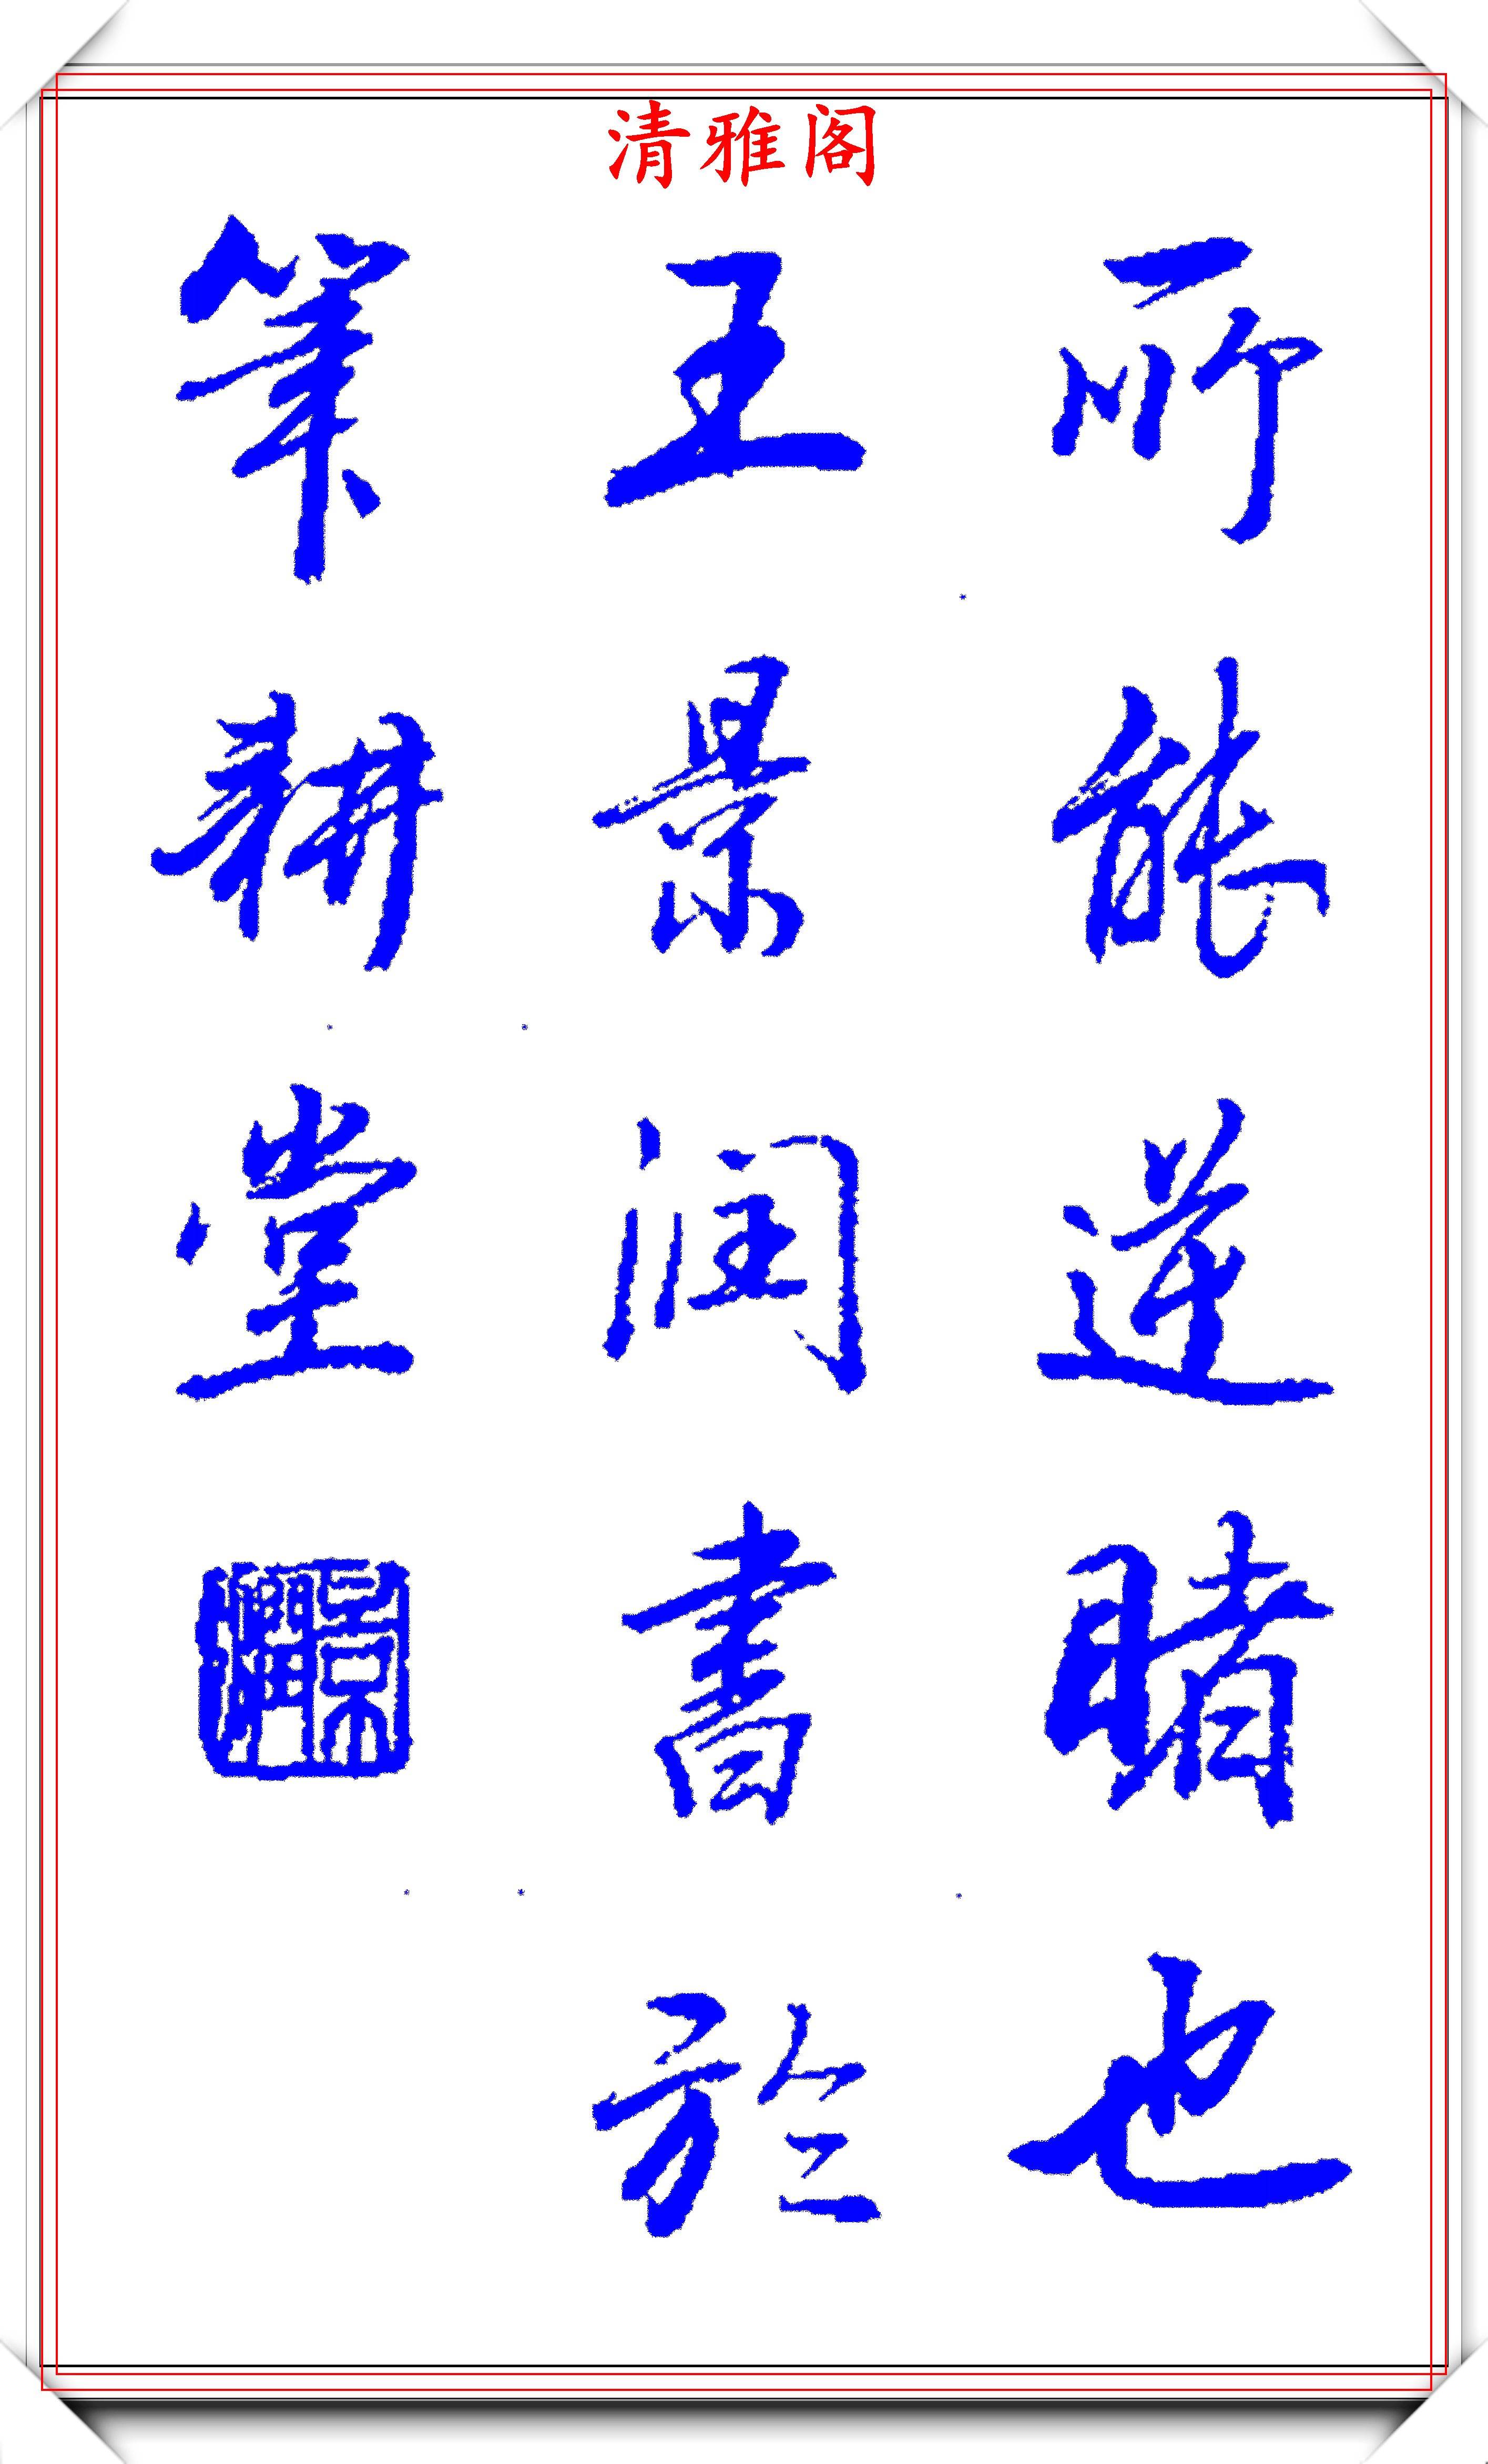 清雅阁
所能道睹也
王景润書於
筆耕堂